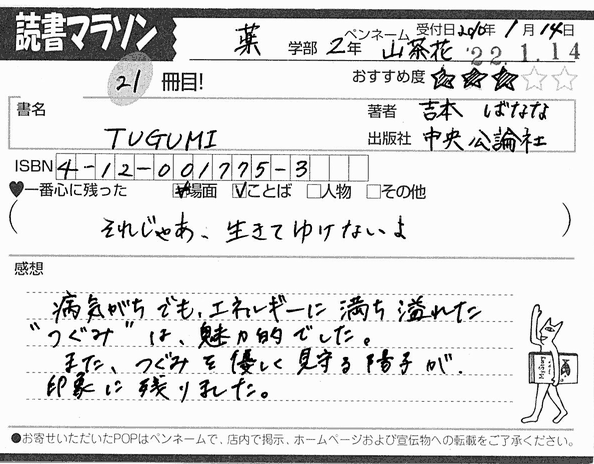 読書マラソン
薬 学部 2年 ペンネーム 山茶花 受付日2010年1月14日
'22.1.14
21 冊目! おすすめ度 ★★★☆☆
書名 著者 吉本 ばなな
TUGUMI 出版社 中央公論社
ISBN 4-12-001775-3
♥一番心に残った ☑場面 ☑ことば □人物 □その他
( それじゃあ、生きてゆけないよ )
感想
病気がちでも、エネルギーに満ち溢れた
"つぐみ"は、魅力的でした。
また、つぐみを優しく見守る陽子が、
印象に残りました。
●お寄せいただいたPOPはペンネームで、店内で掲示、ホームページおよび宣伝物への転載をご了承ください。